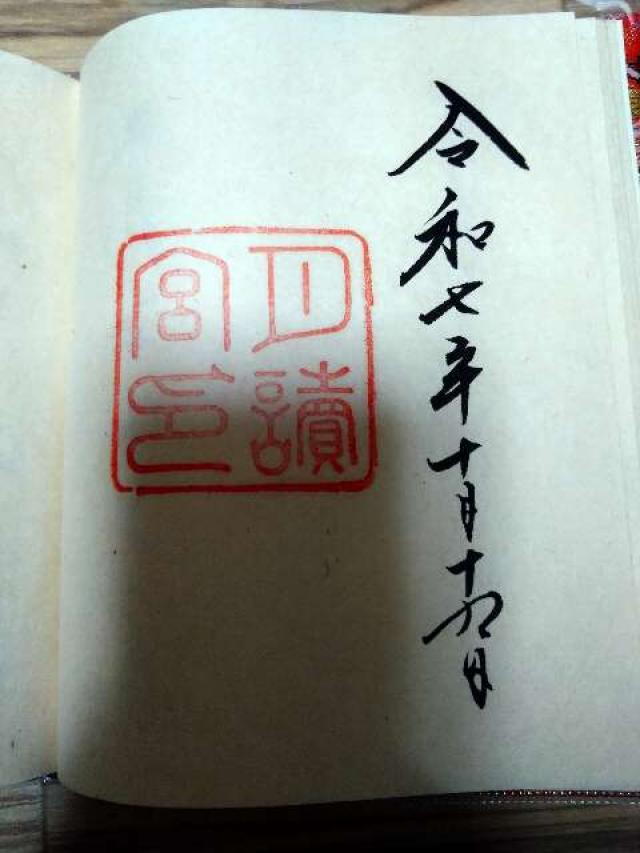 令和七年十月十九日
月讀
宮印